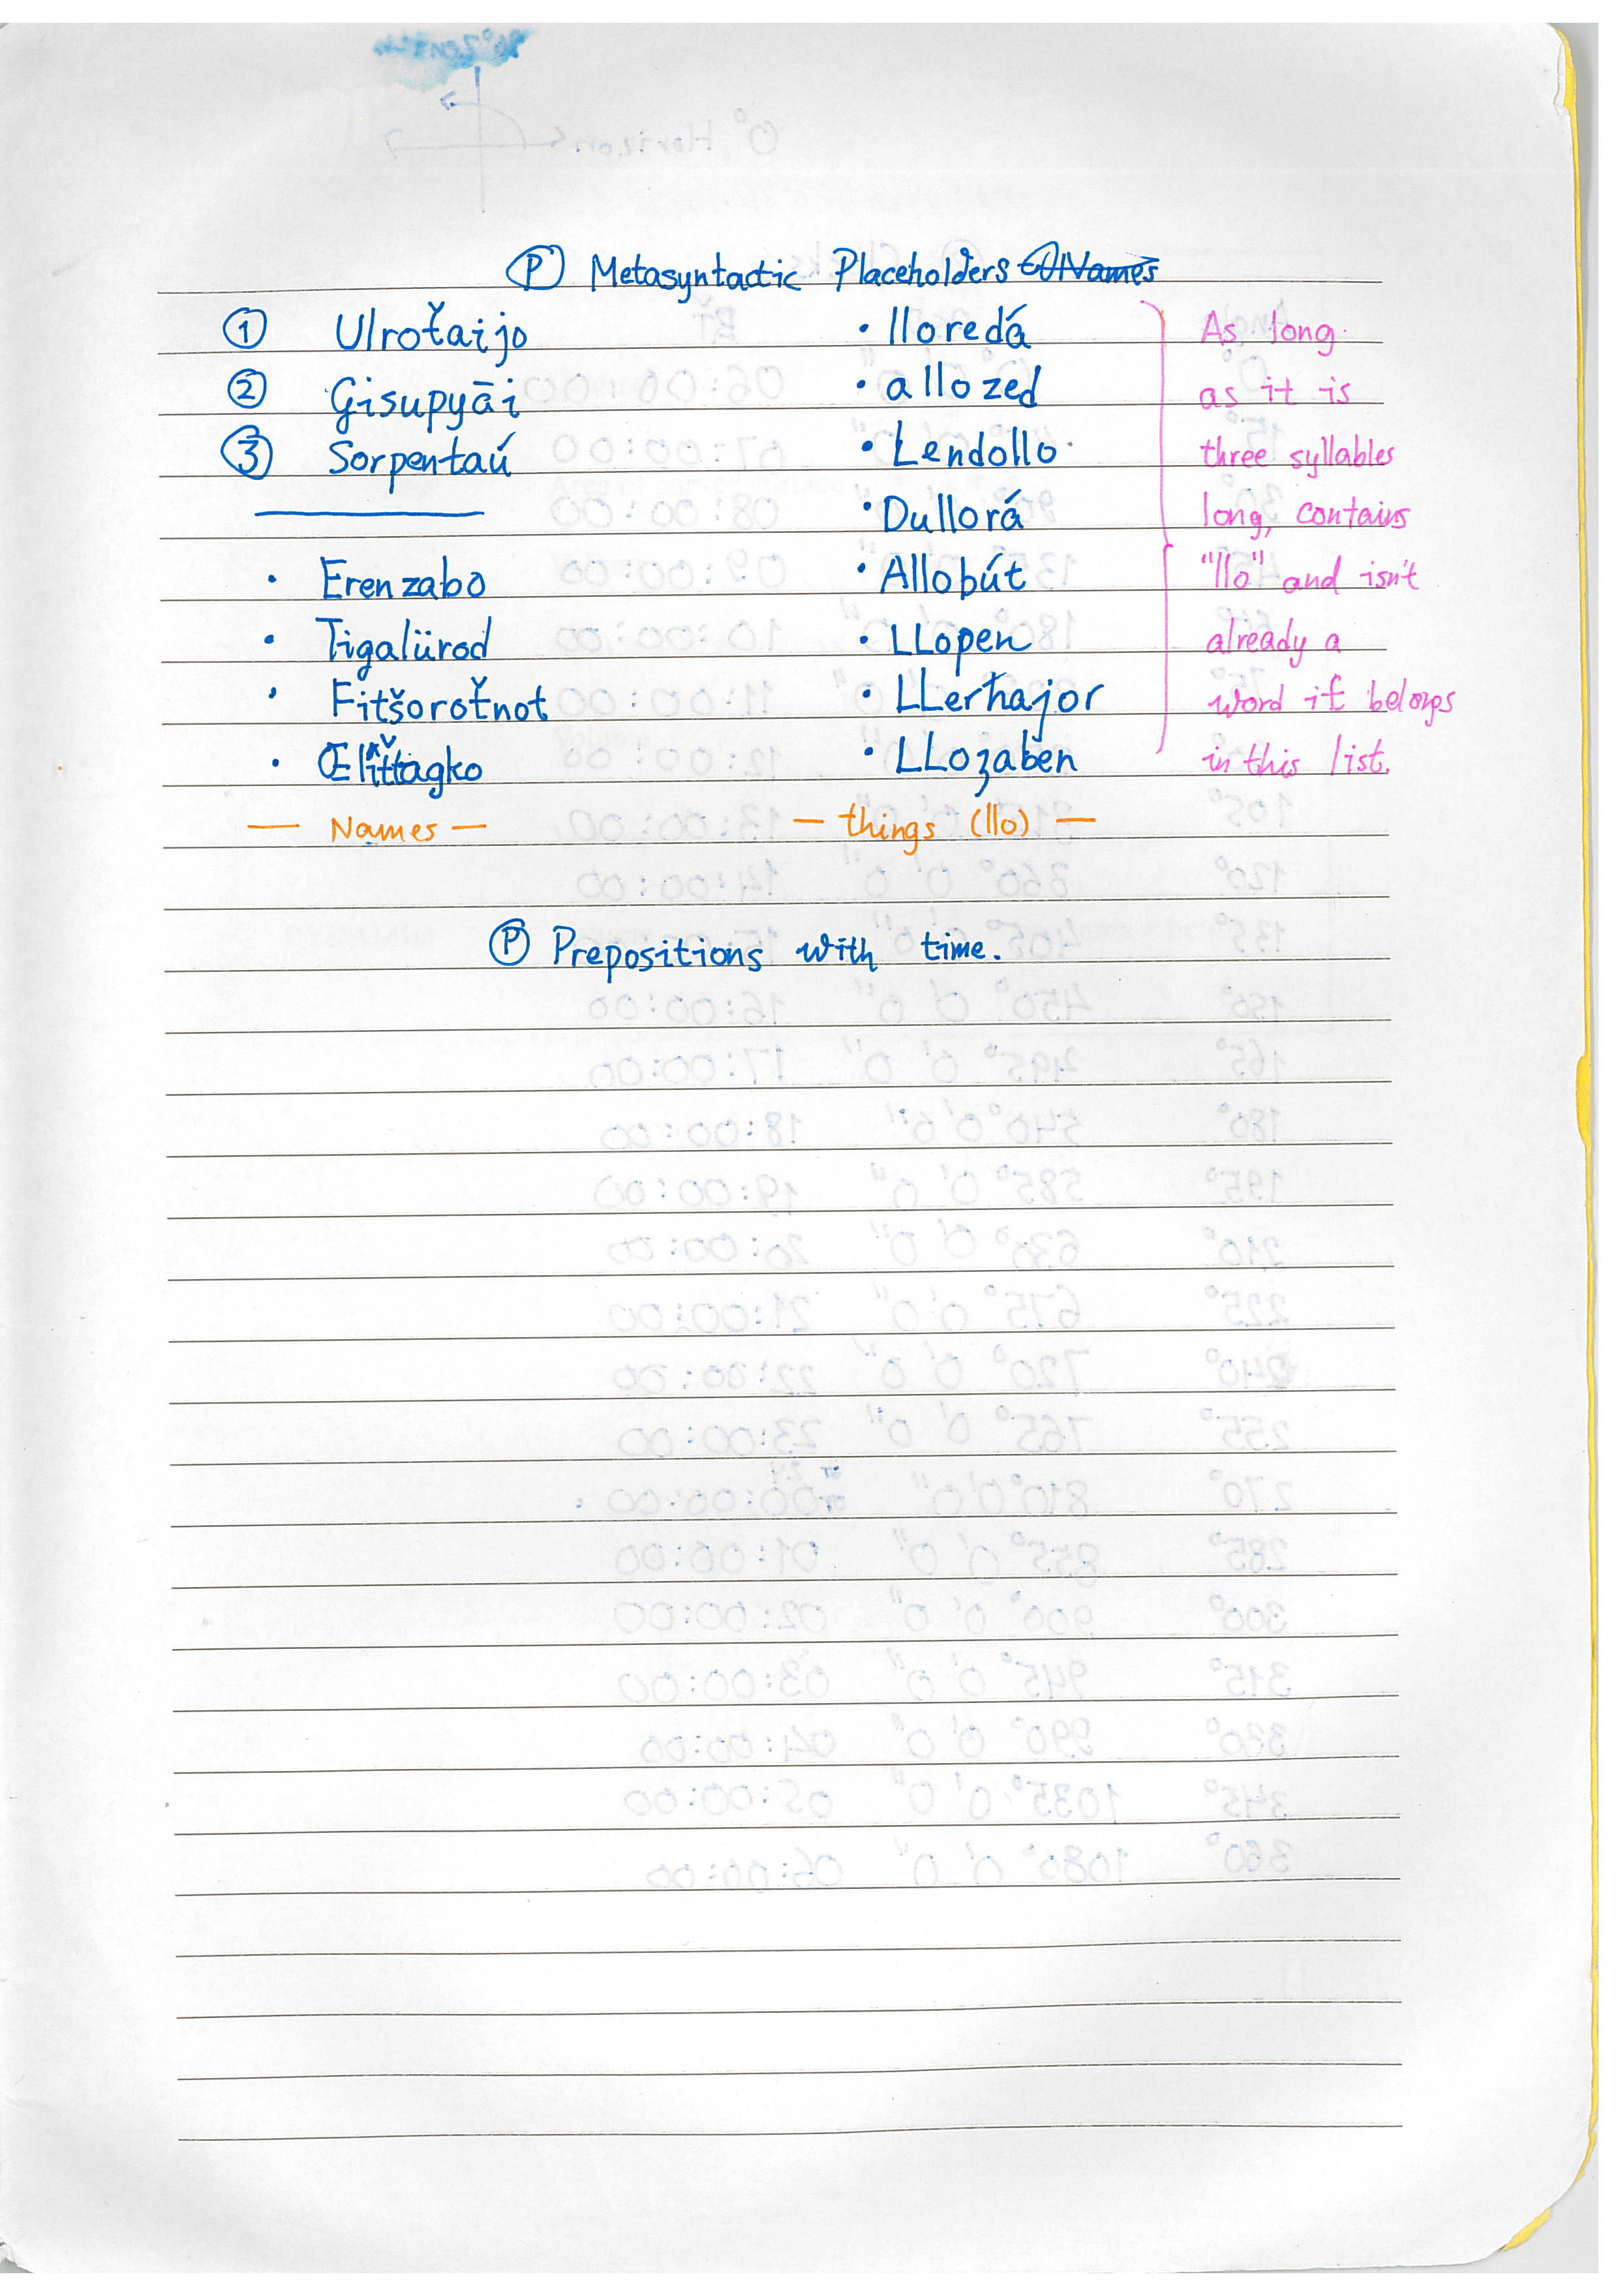 Ⓟ Metasyntactic Placeholders
① Ulroťaijo
② Ģisupyāi
③ Sorpentaú
• Erenzabo
• Tigalürod
• Fitšoroťnot
— Names —
• lloredá
• allozed
• Lendollo
• Dullorá
• Allobút
• LLopen
• LLerhajor
• LLozaben
— things (llo) —
As long
as it is
three syllables
long, contains
"llo" and isn't
already a
word it belongs
in this list.
Ⓟ Prepositions with time.